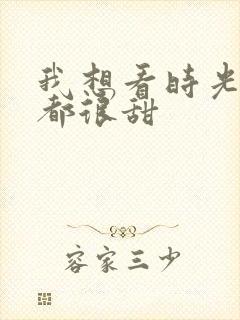 我想看时光
都很甜
容家三少